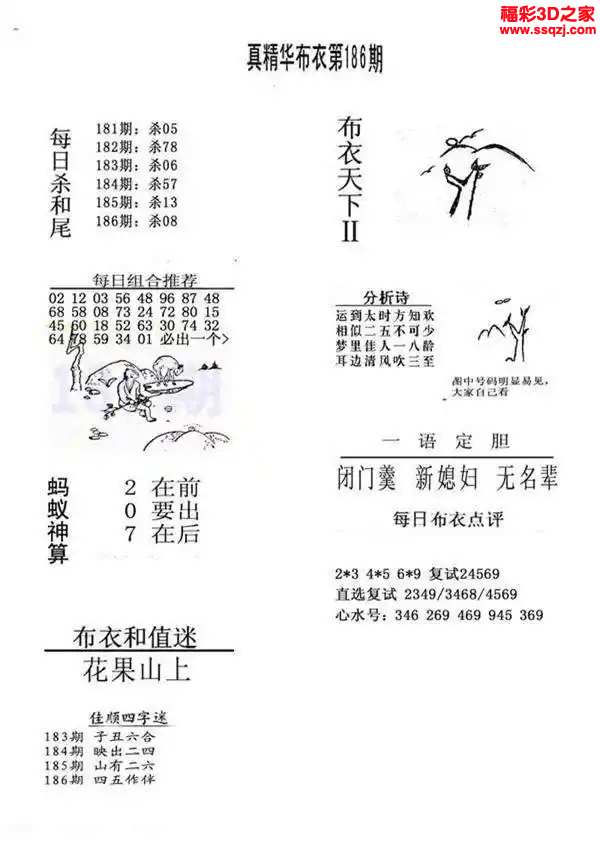 福彩3D之家
www.ssqzj.com
真精华布衣第186期
每日杀和尾
181期: 杀05
182期: 杀78
183期: 杀06
184期: 杀57
185期: 杀13
186期: 杀08
布衣天下II
每日组合推荐
02 12 03 56 48 96 87 48
68 58 08 73 24 72 80 15
45 60 18 52 63 30 74 32
64 78 59 34 01 必出一个>
分析诗
运到太时方知欢
相似二五不可少
梦里佳人一八龄
耳边清风吹三至
图中号码明显易见,
大家自己看
一语定胆
闭门羹 新媳妇 无名辈
每日布衣点评
蚂蚁神算
2 在前
0 要出
7 在后
2*3 4*5 6*9 复试24569
直选复试 2349/3468/4569
心水号: 346 269 469 945 369
布衣和值迷
花果山上
佳顺四字迷
183期 子丑六合
184期 映出二四
185期 山有二六
186期 四五作伴